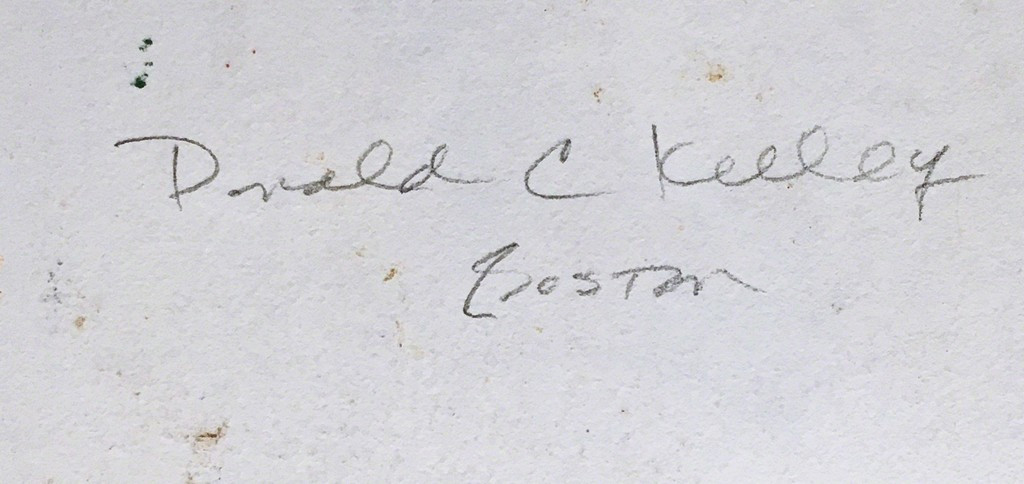 Donald C Kelley
Boston